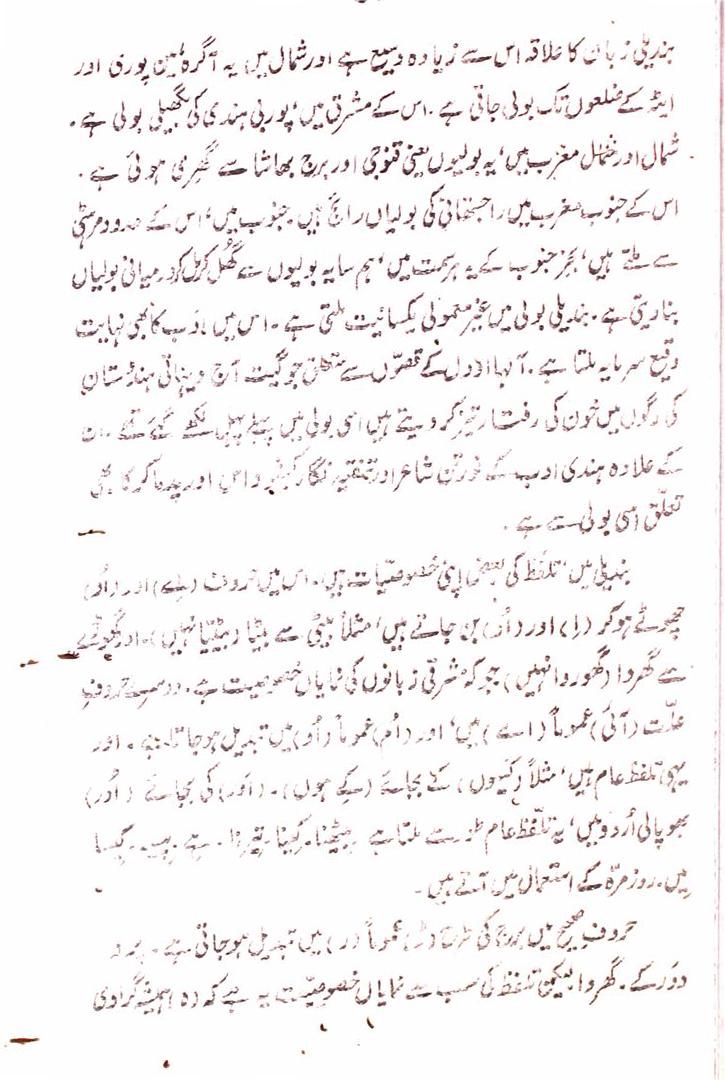 بندیلی زبان کا علاقہ اس سے زیادہ وسیع ہے اور شمال میں یہ آگرہ، مین پوری اور
ایٹہ کے ضلعوں تک بولی جاتی ہے۔ اس کے مشرق میں، پوربی ہندی کی بگھیلی بولی ہے۔
شمال اور شمال مغرب میں، یہ بولیوں یعنی قنوجی اور برج بھاشا سے گھری ہوئی ہے۔
اس کے جنوب مغرب میں راجستھانی کی بولیاں رائج ہیں۔ جنوب میں، اس کے حدود مرہٹی
سے ملتے ہیں، بجز جنوب کے یہ ہر سمت میں، ہم سایہ بولیوں سے گھل مل کر درمیانی بولیاں
بنا دیتی ہے۔ بندیلی بولی میں غیر معمولی یکسانیت ملتی ہے۔ اس میں ادب کا بھی نہایت
وقیع سرمایہ ملتا ہے۔ آلہا اودل کے قصّوں سے متعلق جو گیت آج دیہاتی ہندستان
کی رگوں میں خون کی رفتار تیز کر دیتے ہیں اسی بولی میں پہلے پہل لکھے گئے تھے۔ ان
کے علاوہ ہندی ادب کے نورتن شاعر اور تنقید نگار کیشو داس اور پدماکر کا بھی
تعلّق اسی بولی سے ہے۔
بندیلی میں، تلفّظ کی بعض اپنی خصوصیّات ہیں۔ اس میں حروف (اے) اور (اَو)
چھوٹے ہو کر (اِ) اور (اُ) بن جاتے ہیں، مثلاً بیٹی سے بٹیا (بیٹیا نہیں)۔ اور گھوڑے
سے گھروا (گھوروا نہیں) جو کہ مشرقی زبانوں کی نمایاں خصوصیت ہے۔ دوسرے حروفِ
علّت (اَئی) عموماً (اے) میں، اور عموماً میں تبدیل ہو جاتا ہے۔ اور
یہی تلفظ عام ہیں، مثلاً (کہوں) کے بجائے (کے ہوں)۔ (اور) کی بجائے (اُور)
بھوپالی اُردو میں، یہ تلفّظ عام طور سے ملتا ہے بیٹھنا۔ کہنا
ہیں۔ روز مرّہ کے استعمال میں آتے ہیں۔
حروفِ صحیح میں برج کی طرح (ڑ) عموماً (ر) میں تبدیل ہو جاتی ہے۔
دوڑ کے۔ گھروا لیکن تلفظ کی سب سے نمایاں خصوصیّت یہ ہے کہ (ہ) ہمیشہ گرادی